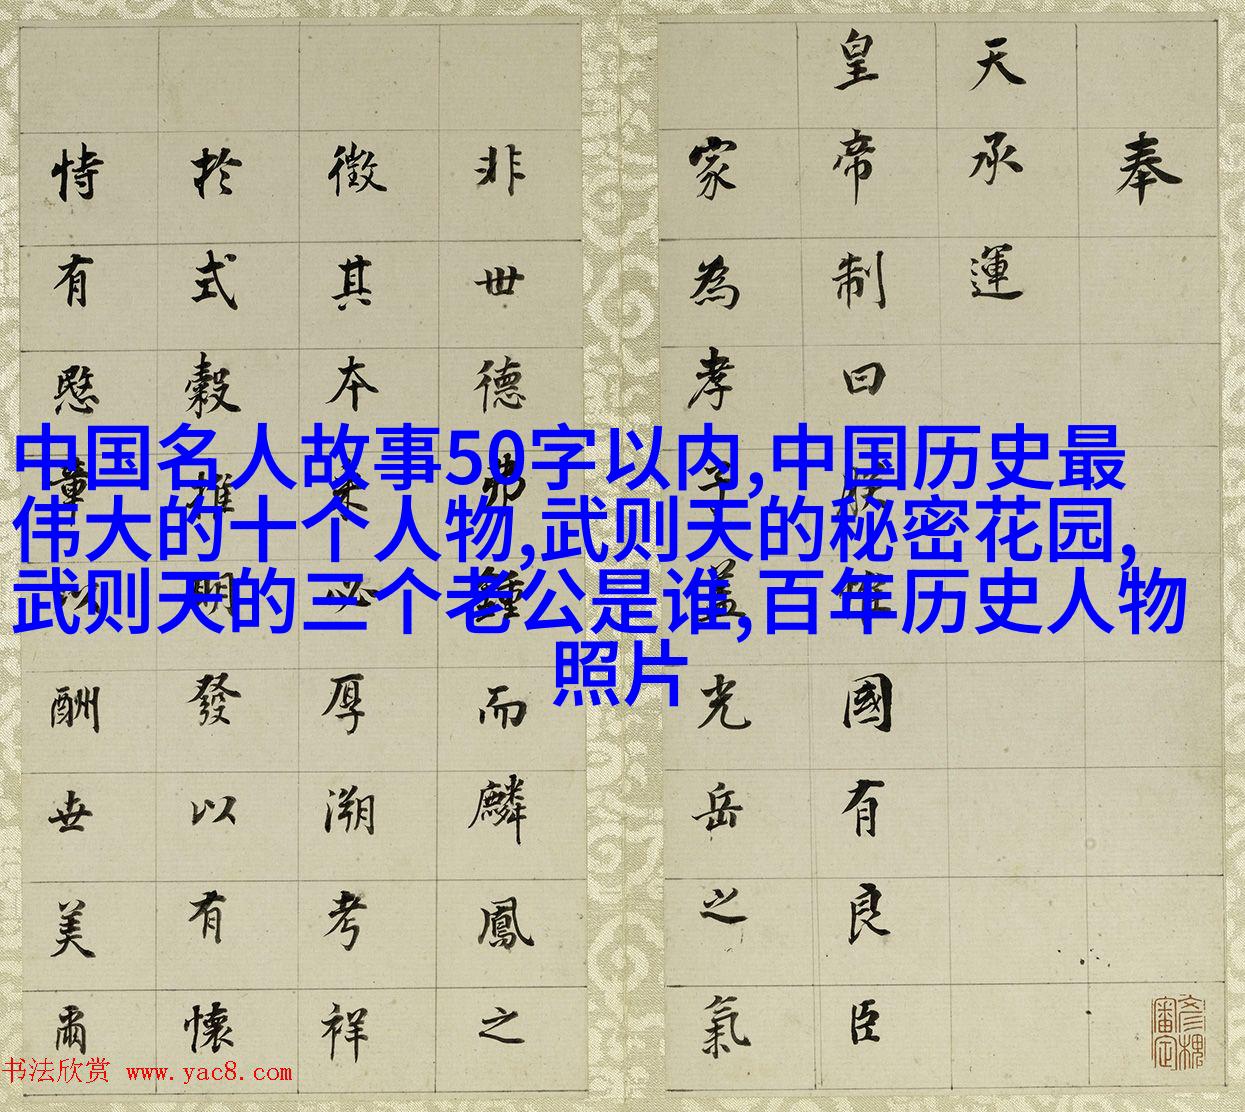 中国名人故事50字以内,中国历史最
伟大的十个人物,武则天的秘密花园,
武则天的三个老公是谁,百年历史人物
照片
奉
天承運
皇帝制曰朕惟國有良臣
家為孝子蓋光岳之氣
非世德弗鍾而麟鳳之
徵其本必厚溯考祥
於式穀推明發以有懷
恃有愍章以酬世美爾
书法欣赏 www.yac8.com